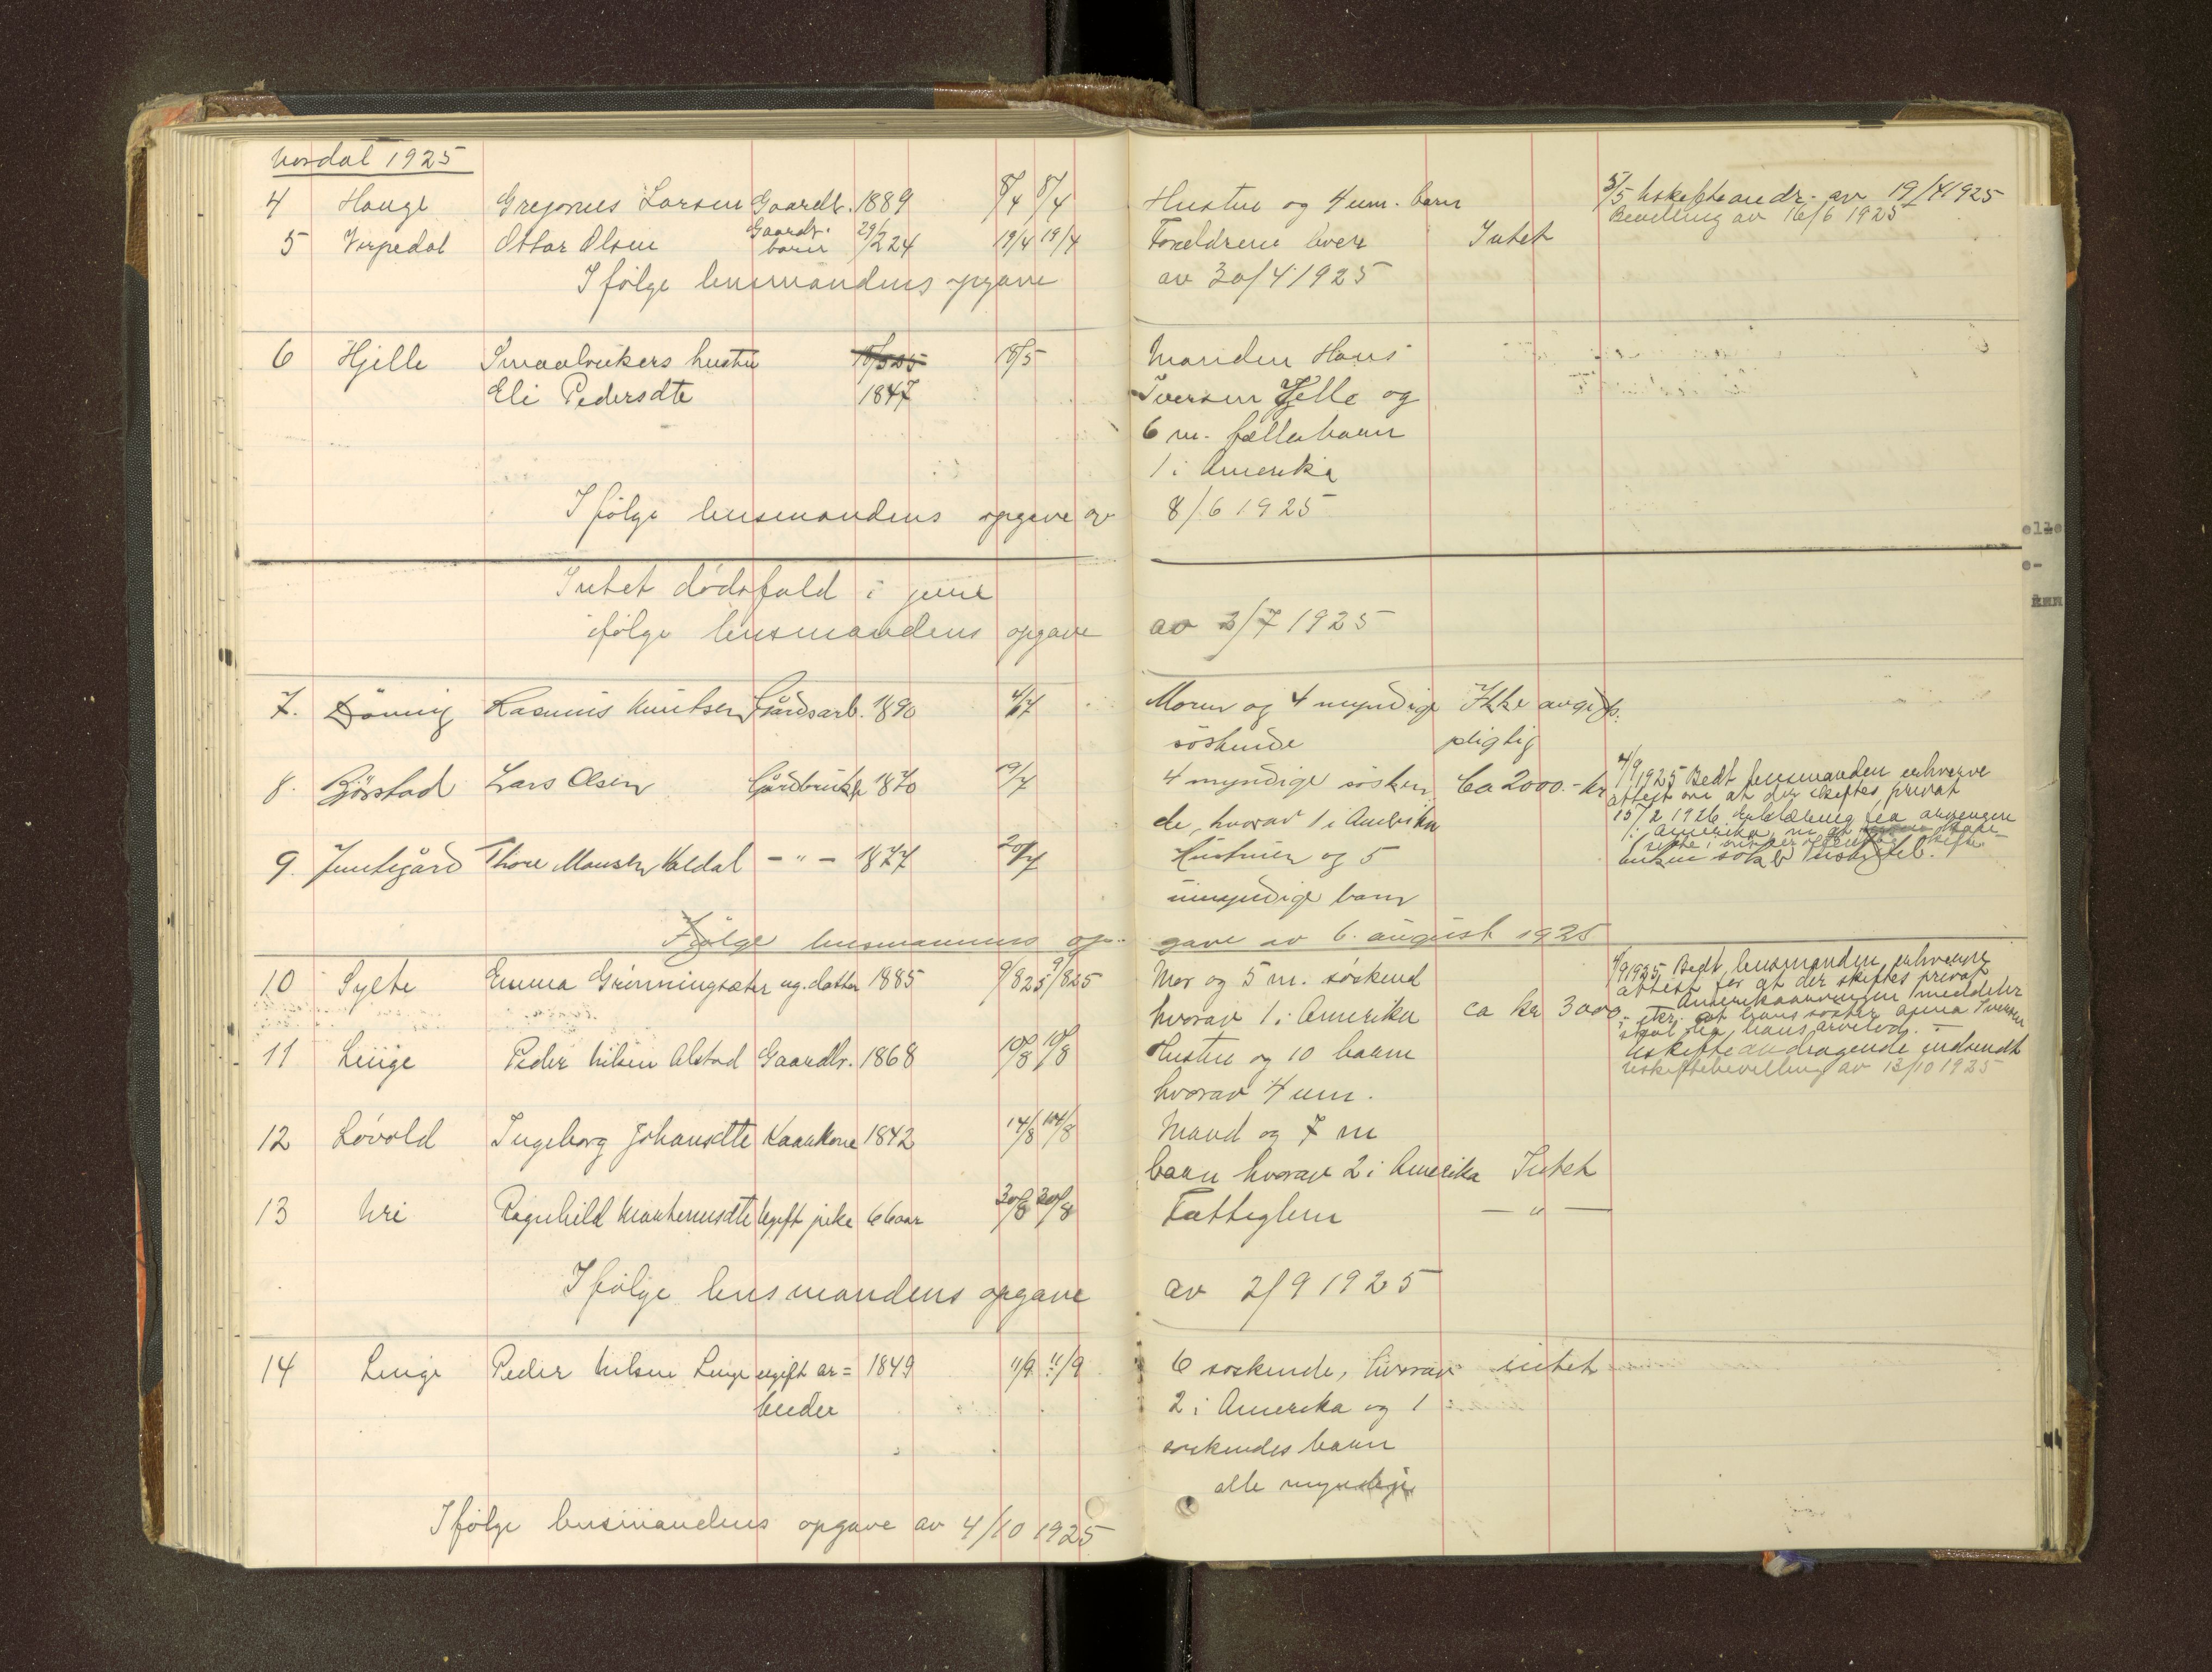 Nordal 1925
4 Hauge Gregorius Larsen Gaardb. 1889 8/4 8/4 Hustru og 4 um. barn 5/5 Uskifteandr. av 19/4 1925
Bevilling av 16/6 1925
5 Verpedal Ottar Olsen Gaardbr. barn 29/2 24 19/4 19/4 Forældrene lever Intet
Ifølge lensmandens opgave av 30/4 1925
6 Hjelle Smaabrukers hustru 18/5 25 18/5 Manden Hans
Eli Pedersdtr 1847 Iversen Hjelle og
6 m. fællesbarn
1 i Amerika
Ifølge lensmandens opgave av 8/6 1925
Intet dødsfald i juni
ifølge lensmandens opgave av 2/7 1925
7. Døving Rasmus Knutsen Gårdsarb. 1890 4/7 Moren og 4 myndige Ikke avgifts-
søskende pligtig
8. Bjørstad Lars Olsen Gårdbruker 1870 19/7 4 myndige søsken Ca 2000.- kr
de, hvorav 1 i Amerika
4/9 1925 Bedt lensmanden erhverve
attest om at der skiftes privat
15/2 1926 erklæring fra arvingen
i Amerika
9. Jemtegård Thore Monsen Valdal - " - 1877 20/7 Hustruen og 5
umyndige barn
Ifølge lensmannens op- gave av 6. august 1925
10 Sylte Emma Grønningsæter ug. datter 1885 9/8 25 9/8 25 Mor og 5 m. søskend
hvorav 1 i Amerika ca kr 3000.-
4/9 1925 Bedt lensmanden erhverve
attest for at der skiftes privat
Amerikaarvingen meddeler
skr. at hans søster Anna Iversen
skal ha hans arvelod. -
11 Linge Peder Nilsen Alstad Gaardbr. 1868 10/8 10/8 Hustru og 10 barn Uskifteandragende indsendt
hvorav 4 um. Uskiftebevilling av 13/10 1925
12 Løvold Ingeborg Johansdtr Kaarkone 1842 14/8 14/8 Mand og 7 m
barn hvorav 2 i Amerika Intet
13 Uri Ragnhild Ugift pike 66 aar 30/8 30/8 Fattiglem - " -
Ifølge lensmandens opgave av 2/9 1925
14 Linge Peder Nilsen Linge ugift ar= 1849 11/9 11/9 6 søskende, hvorav intet
beider 2 i Amerika og 1
søskendes barn
alle myndige
Ifølge lensmandens opgave av 4/10 1925